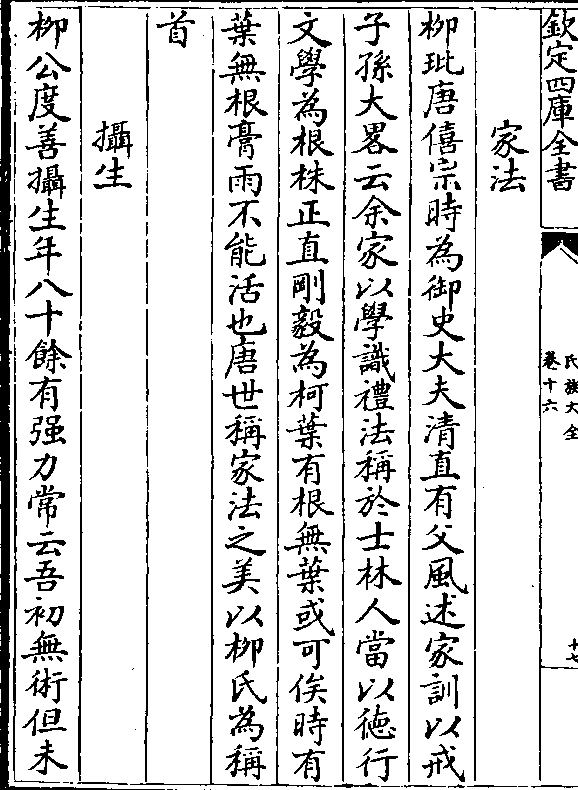 欽定四庫全書
氏族大全
卷十六
十七
家法
柳玭唐僖宗時為御史大夫清直有父風述家訓以戒
子孫大畧云余家以學識禮法稱於士林人當以德行
文學為根株正直剛毅為柯葉有根無葉或可俟時有
葉無根膏雨不能活也唐世稱家法之美以柳氏為稱
首
攝生
柳公度善攝生年八十餘有强力常云吾初無術但未